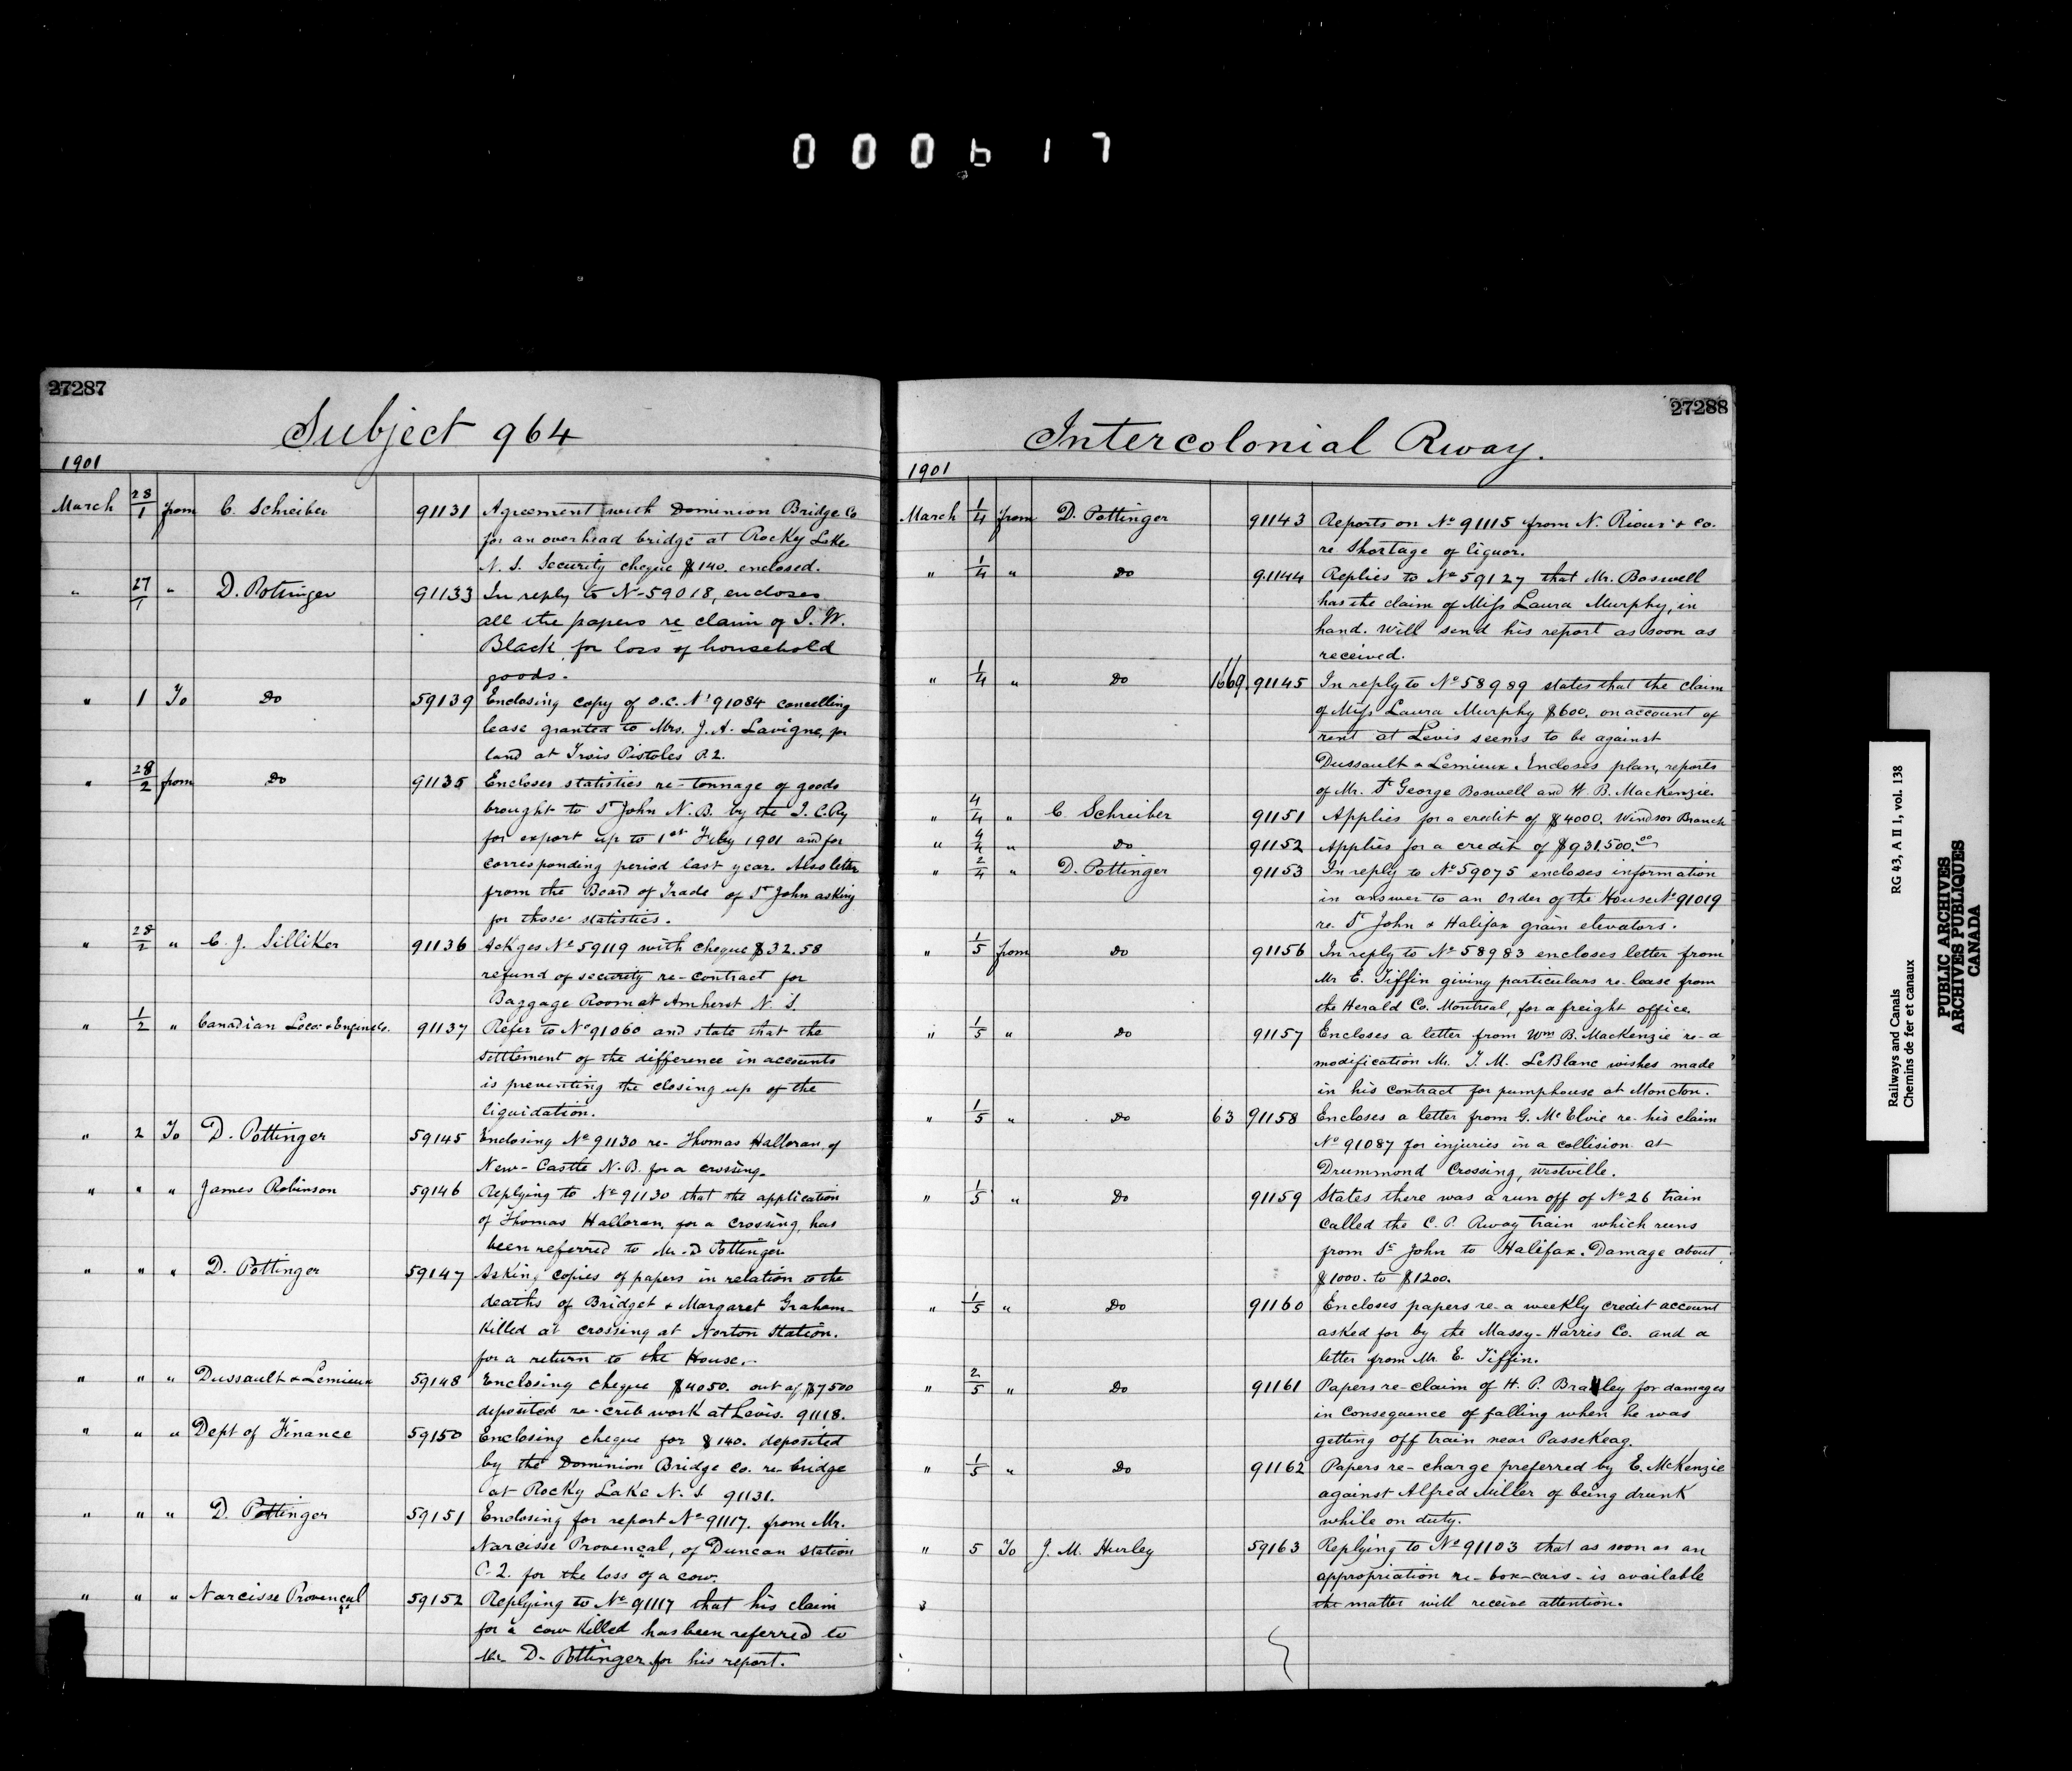 000617
27287
Subject 964
1901
March 28/1 from C. Schreiber 91131 Agreement with Dominion Bridge Co
for an overhead bridge at Rocky Lake
N. S. Security cheque $140. enclosed.
" 27/1 " D. Pottinger 91133 In reply to No 59018, encloses
all the papers re claim of J. W.
Black for loss of household
goods.
" 1 To Do 59139 Enclosing copy of O.C. No 91084 cancelling
lease granted to Mrs. J. A. Lavigne, for
land at Trois Pistoles P.2.
" 28/2 from Do 91135 Encloses statistics re-tonnage of goods
brought to St John N. B. by the I. C. Ry
for export up to 1st Feby 1901 and for
corresponding period last year. Also letter
from the Board of Trade of St John asking
for those statistics.
" 28/2 " C. J. Silliker 91136 Ackges No 59119 with cheque $32.58
refund of security re-contract for
Baggage Room at Amherst N. S.
" 1/2 " Canadian Loco. & Engine Co. 91137 Refer to No 91060 and state that the
settlement of the difference in accounts
is preventing the closing up of the
liquidation.
" 2 To D. Pottinger 59145 Enclosing No 91130 re- Thomas Halloran, of
New-Castle N.B. for a crossing.
" " " James Robinson 59146 Replying to No 91130 that the application
of Thomas Halloran, for a crossing, has
been referred to Mr. D Pottinger
" " " D. Pottinger 59147 Asking copies of papers in relation to the
deaths of Bridget & Margaret Graham-
killed at crossing at Norton Station.
for a return to the House.-
" " " Dussault & Lemieux 59148 Enclosing cheque $4050. out of $7500
deposited re-crib work at Levis. 91118.
" " " Dept of Finance 59150 Enclosing cheque for $140. deposited
by the Dominion Bridge Co. re-bridge
at Rocky Lake N. S 91131.
" " " D. Pottinger 59151 Enclosing for report No 91117. from Mr.
Narcisse Provençal, of Duncan Station
C.2. for the loss of a cow.
" " " Narcisse Provençal 59152 Replying to No 91117 that his claim
for a cow killed has been referred to
Mr. D. Pottinger for his report.
27288
Intercolonial Rway.
1901
March 1/4 from D. Pottinger 91143 Reports on No 91115 from N. Rioux & Co.
re Shortage of liquor.
" 1/4 " Do 91144 Replies to No 59127 that Mr. Boswell
has the claim of Miss Laura Murphy, in
hand. Will send his report as soon as
received.
" 1/4 " Do 1669 91145 In reply to No 58989 states that the claim
of Miss Laura Murphy $600. on account of
rent at Levis seems to be against
Dussault & Lemieux. Encloses plan, reports
of Mr. St George Boswell and W. B. MacKenzie.
" 4/4 " C. Schreiber 91151 Applies for a credit of $4000. Windsor Branch
" 4/4 " Do 91152 Applies for a credit of $931.500.00
" 2/4 " D. Pottinger 91153 In reply to No 59075 encloses information
in answer to an Order of the House No 91019
re. St John & Halifax grain elevators.
" 1/5 from Do 91156 In reply to No 58983 encloses letter from
Mr E. Tiffin giving particulars re. lease from
the Herald Co. Montreal, for a freight office.
" 1/5 " Do 91157 Encloses a letter from Wm B. MacKenzie re-a
modification Mr. T. M. LeBlanc wishes made
in his contract for pumphouse at Moncton.
" 1/5 " Do 63 91158 Encloses a letter from G. McElvie re-his claim
No 91087 for injuries in a collision at
Drummond Crossing, Westville.
" 1/5 " Do 91159 States there was a run off of No 26 train
called the C. P. Rway train which runs
from St John to Halifax. Damage about
$1000. to $1200.
" 1/5 " Do 91160 Encloses papers re-a weekly credit account
asked for by the Massy-Harris Co. and a
letter from Mr. E. Tiffin.
" 2/5 " Do 91161 Papers re-claim of H. P. for damages
in consequence of falling when he was
getting off train near Passekeag.
" 1/5 " Do 91162 Papers re-charge preferred by E. McKenzie
against Alfred Miller of being drunk
while on duty.
" 5 To J. M. Hurley 59163 Replying to No 91103 that as soon as an
appropriation re-box-cars-is available
the matter will receive attention.
Railways and Canals RG 43, A II 1, vol. 138
Chemins de fer et canaux
PUBLIC ARCHIVES
ARCHIVES PUBLIQUES
CANADA